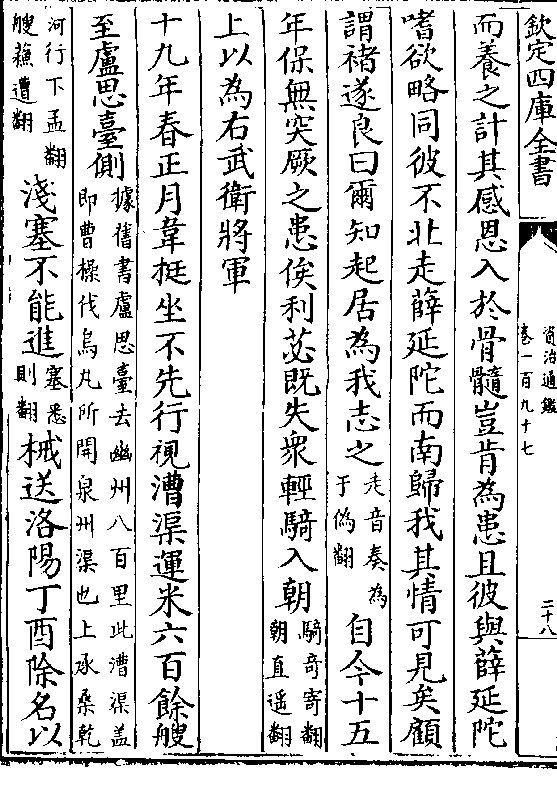 欽定四庫全書
資治通鑑
卷一百九十七
三十八
而養之計其感恩入於骨髓豈肯為患且彼與薛延陀
嗜欲略同彼不北走薛延陀而南歸我其情可見矣顧
謂褚遂良曰爾知起居為我志之走音奏為于偽翻自今十五
年保無突厥之患俟利苾既失衆輕騎入朝騎奇寄翻朝直遥翻
上以為右武衛將軍
十九年春正月韋挺坐不先行視漕渠運米六百餘艘
至盧思臺側據舊書盧思臺去幽州八百里此漕渠盖即曹操伐烏丸所開泉州渠也上承桑乾
河行下孟翻艘蘇遭翻淺塞不能進塞悉則翻械送洛陽丁酉除名以